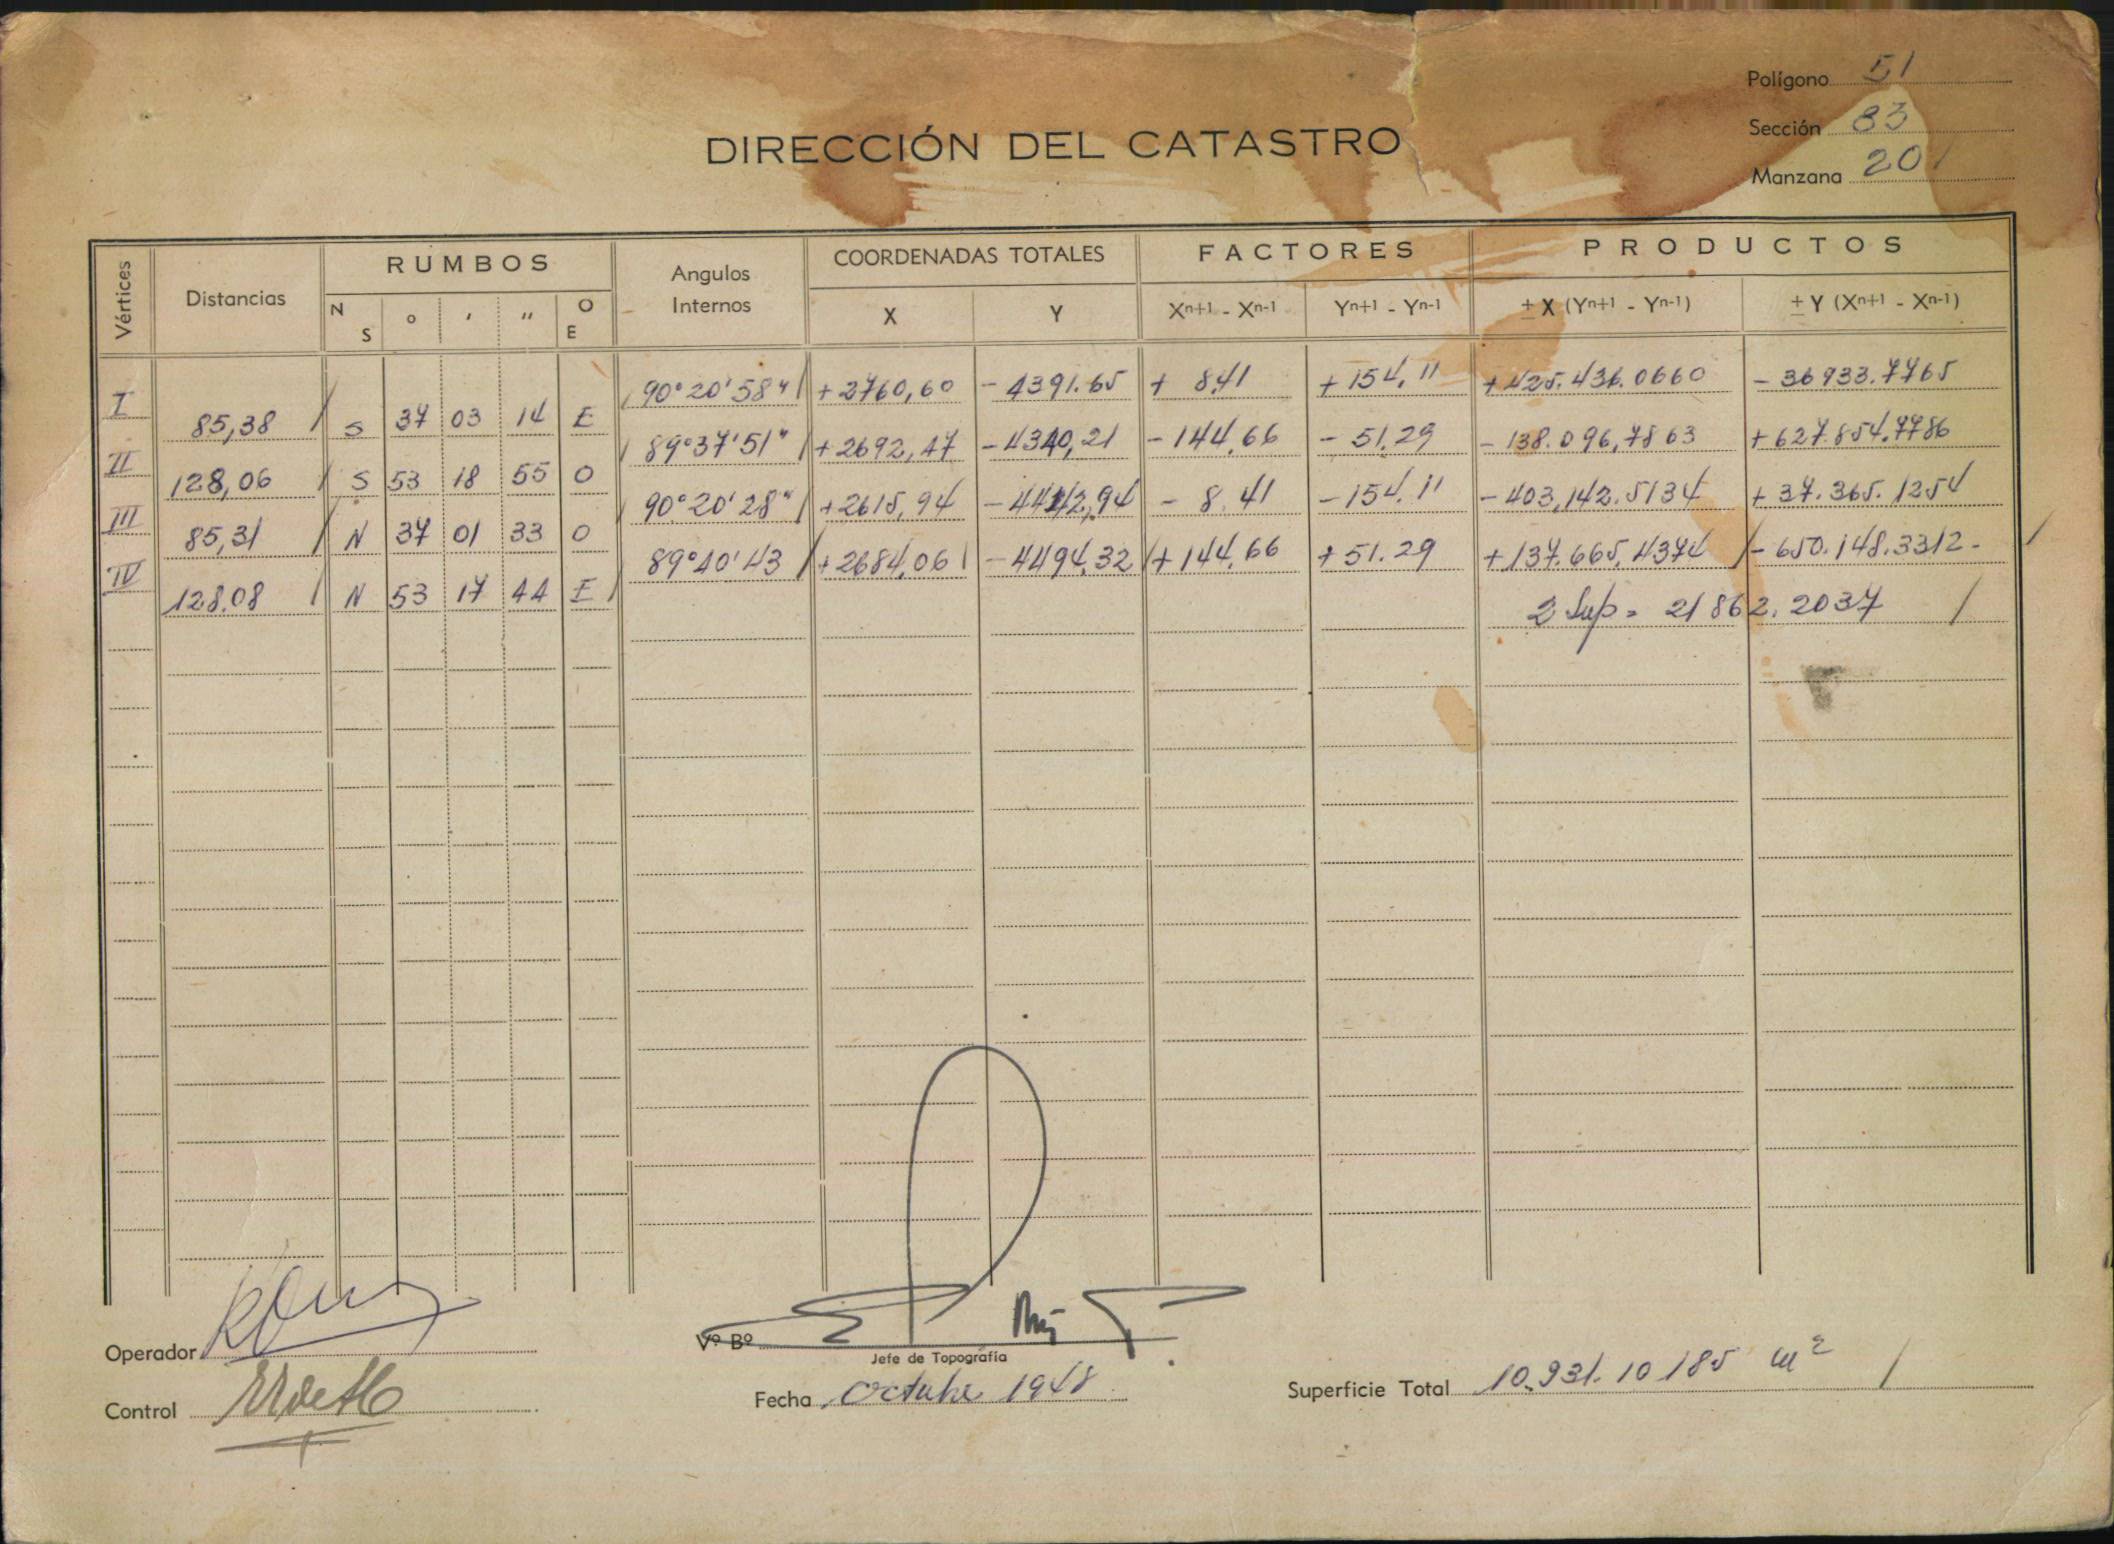 Polígono 51
Sección 83
Manzana 20
DIRECCIÓN DEL CATASTRO
Vértices Distancias RUMBOS Angulos Internos COORDENADAS TOTALES FACTORES PRODUCTOS
N S ° ' " O E X Y Xn+1 - Xn-1 Yn+1 - Yn-1 ± X (Yn+1 - Yn-1) ± Y (Xn+1 - Xn-1)
I 90°20'58" +2760,60 -4391.65 + 8.41 +154.11 +425.436.0660 -36933.7765
85,38 S 37 03 14 E
II 89°37'51" +2692,47 -4340,21 -144,66 -51.29 -138.096,7863 +627.854,7786
128,06 S 53 18 55 O
III 90°20'28" +2615,94 -4442,94 - 8.41 -154.11 -403,142.5134 +37.365.1254
85,31 N 37 01 33 O
IV 89°40'43 +2684,06 -4494,32 +144,66 +51.29 +137.665,4374 -650.148.3312-
128.08 N 53 17 44 E
2 Sup = 21862.2037
Operador
Vº Bº
Jefe de Topografía
Control
Fecha Octubre 1948
Superficie Total 10.931.10185 m²